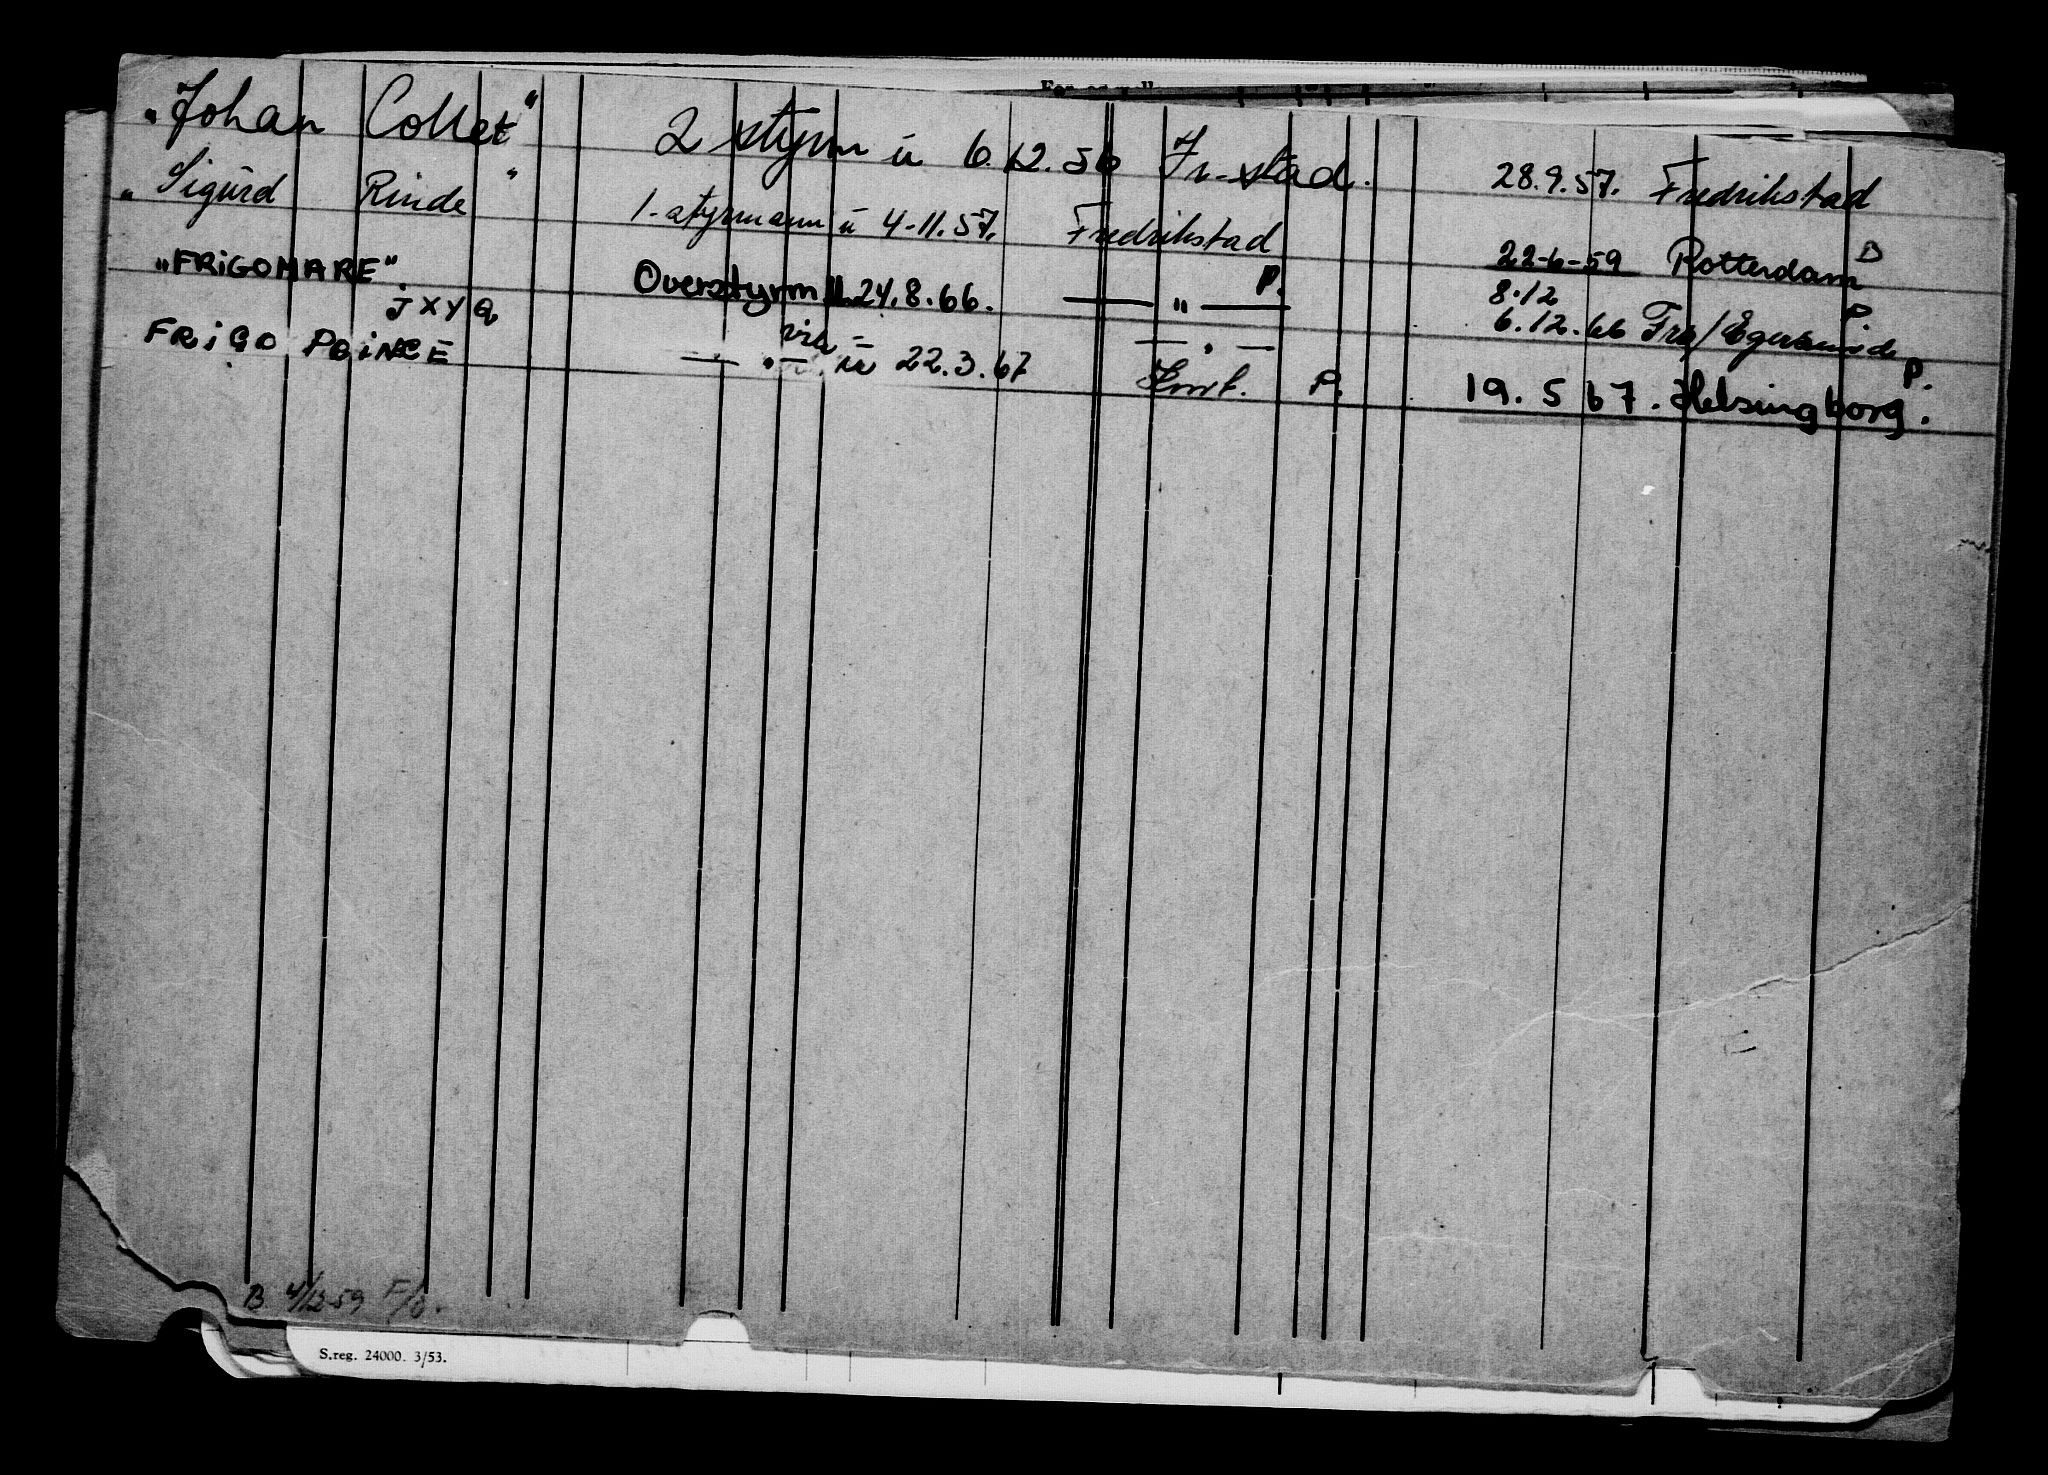 "Johan Collet" 2 styrm u 6.12.56 Fr-stad. 28.9.57. Fredrikstad
"Sigurd Rinde" 1-styrmann u 4-11.57. Fredrikstad 22-6-59 Rotterdam B
"FRIGOMARE" Overstyrm u 24.8.66. — " — P. 8.12
JXYQ 6.12.66 Fra/Egersund P
FRIGO PRINCE — " — u 22.3.67 P. 19.5 67. Helsingborg. P.
B 4/12-59 F/
S.reg. 24000. 3/53.